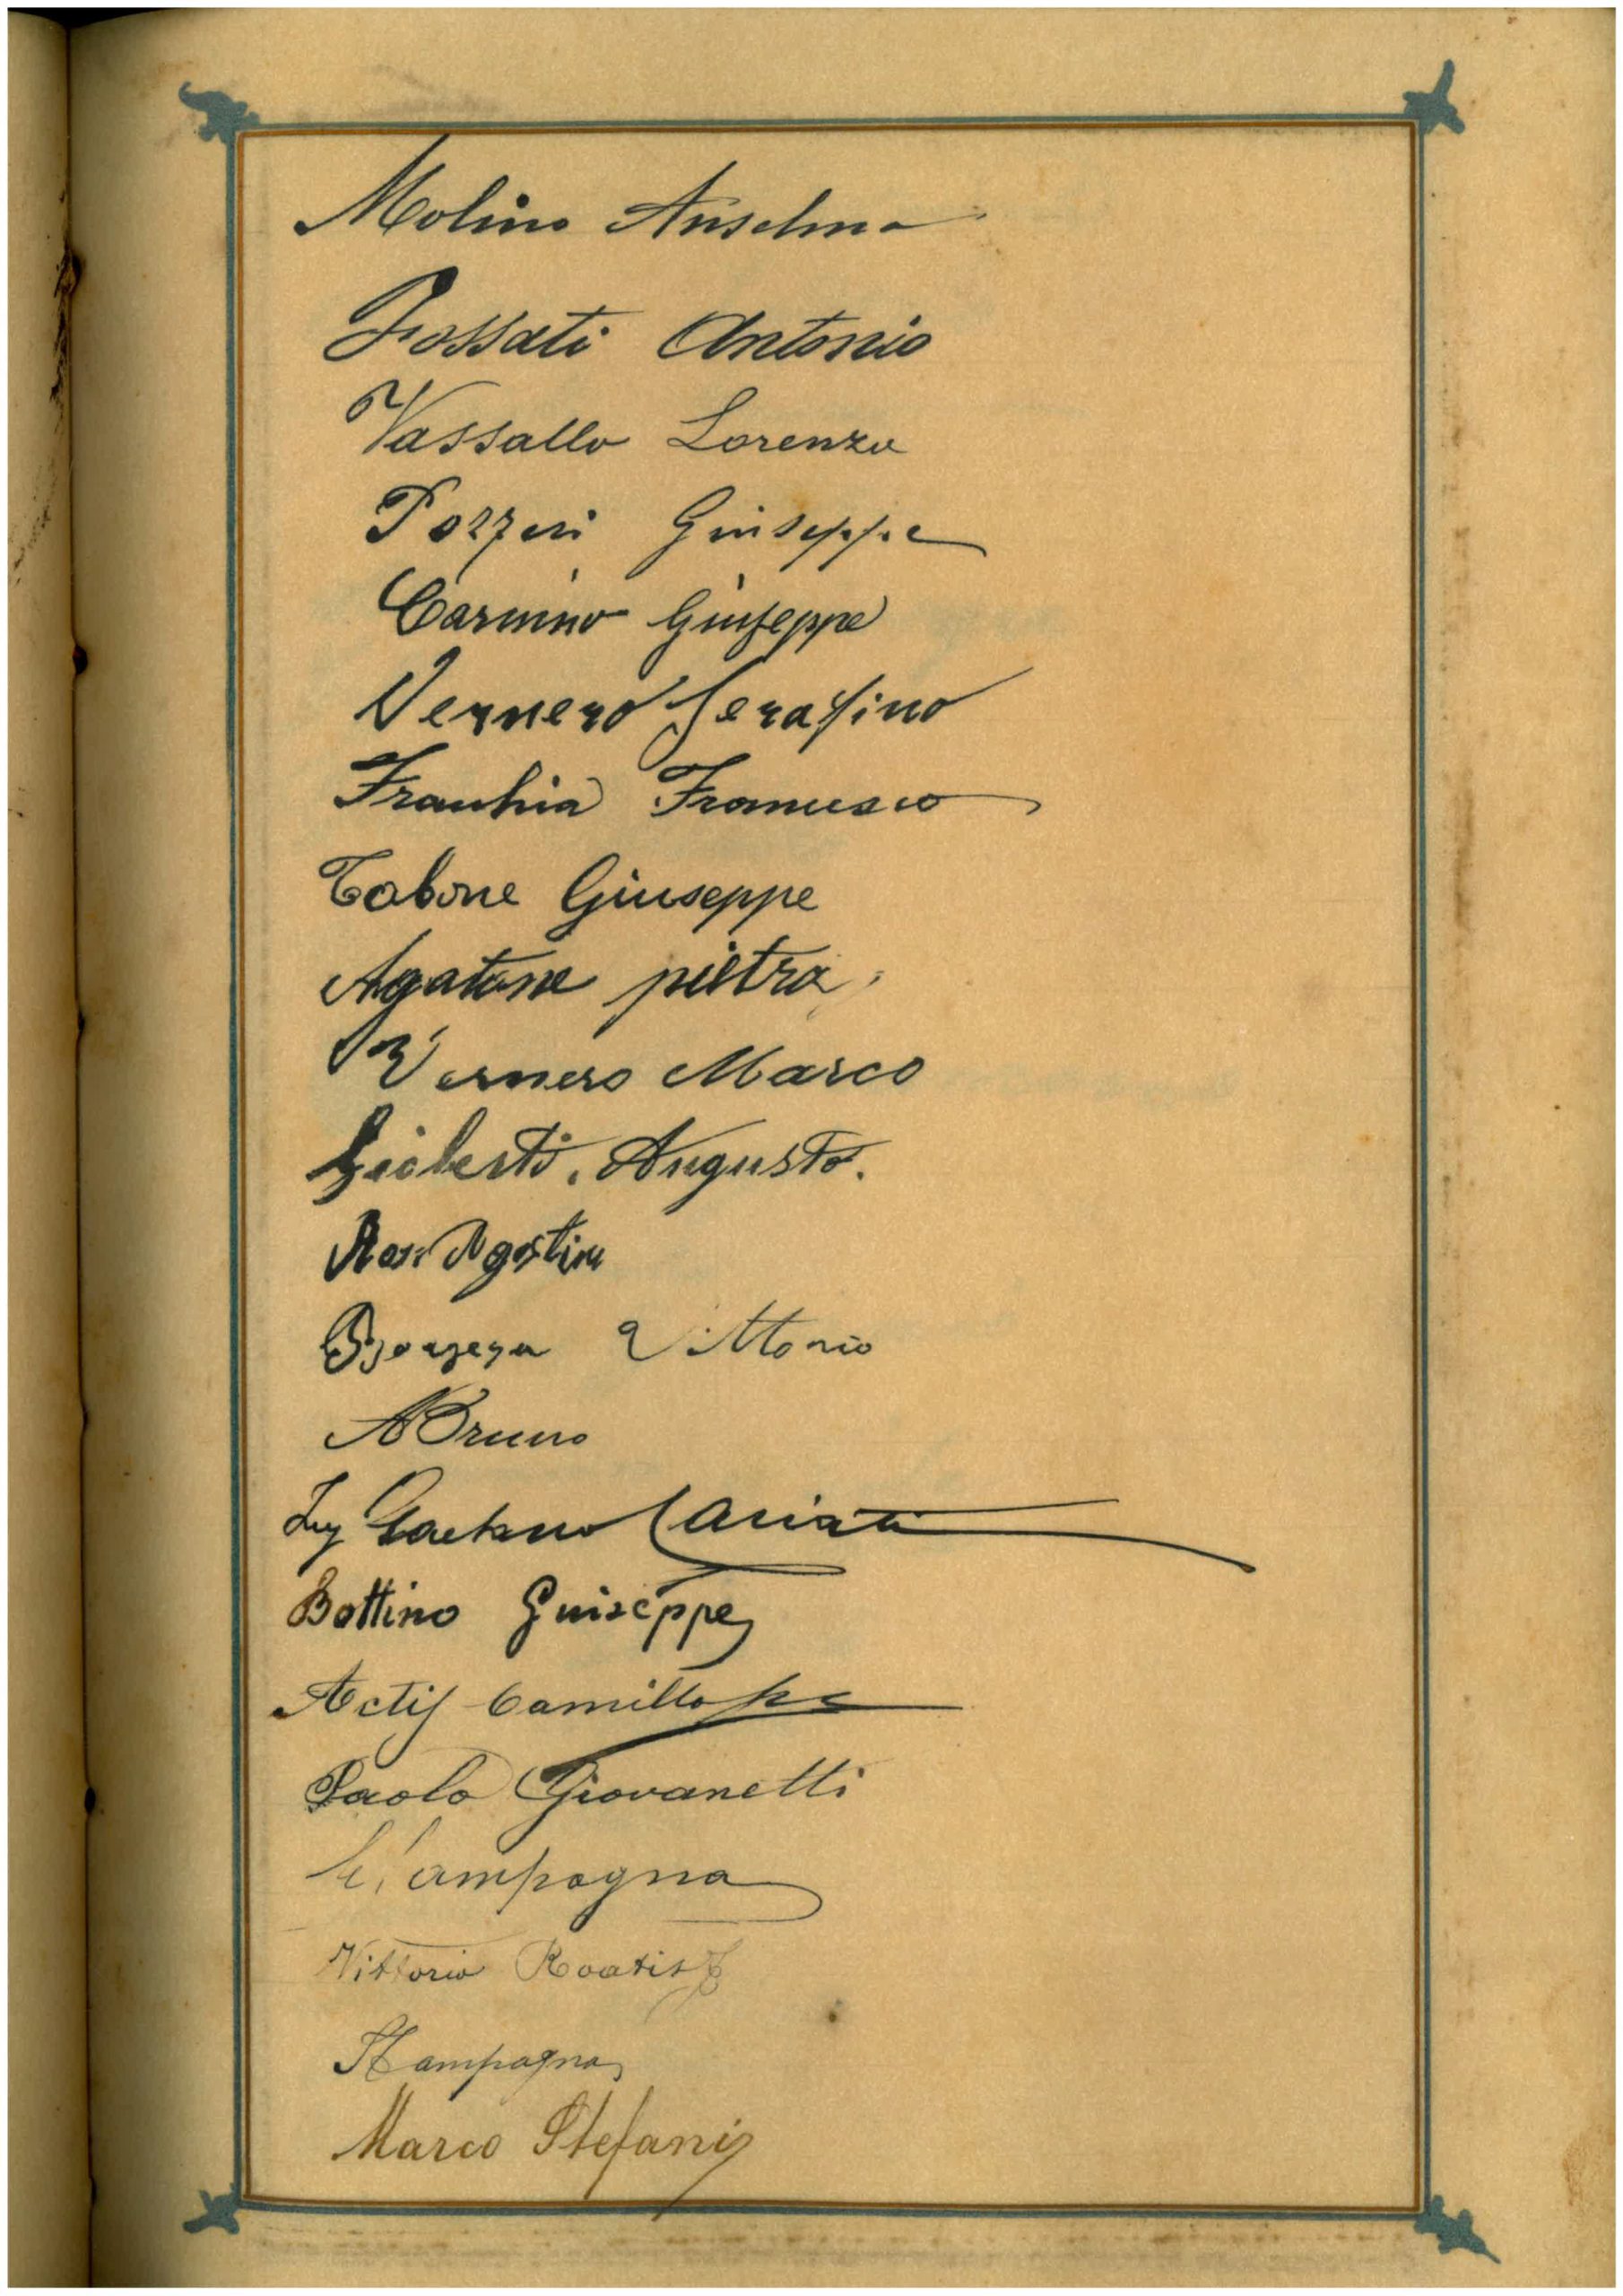 Molino Anselmo
Fossati Antonio
Vassallo Lorenzo
Pozzeri Giuseppe
Carmino Giuseppe
Vernero Serafino
Franchia Francesco
Tabone Giuseppe
Agatone pietra
Vernero Marco
Gioberti. Augusto.
Rossi Agostino
Vittorio
A Bruno
Ing Gaetano Cariati
Bottino Guiseppe
Actis Camillo
Paolo Giovanetti
C. Campagna
Vittorio
Campagna
Marco Stefani